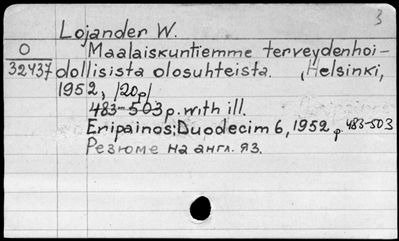 3
Lojander W.
O Maalaiskuntiemme terveydenhoi-
32437 dollisista olosuhteista. , Helsinki,
1952, /20p/
483-503 p. with ill.
Eripainos: Duodecim 6, 1952 p 483-503
Резюме на англ. яз.